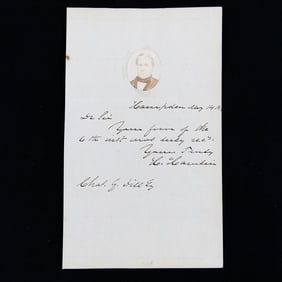 Hampden May 14
Dr Sir
Yours favor of the
6th inst. was duly recd.
Yours Truly
H. Hamlin
Chas. G.